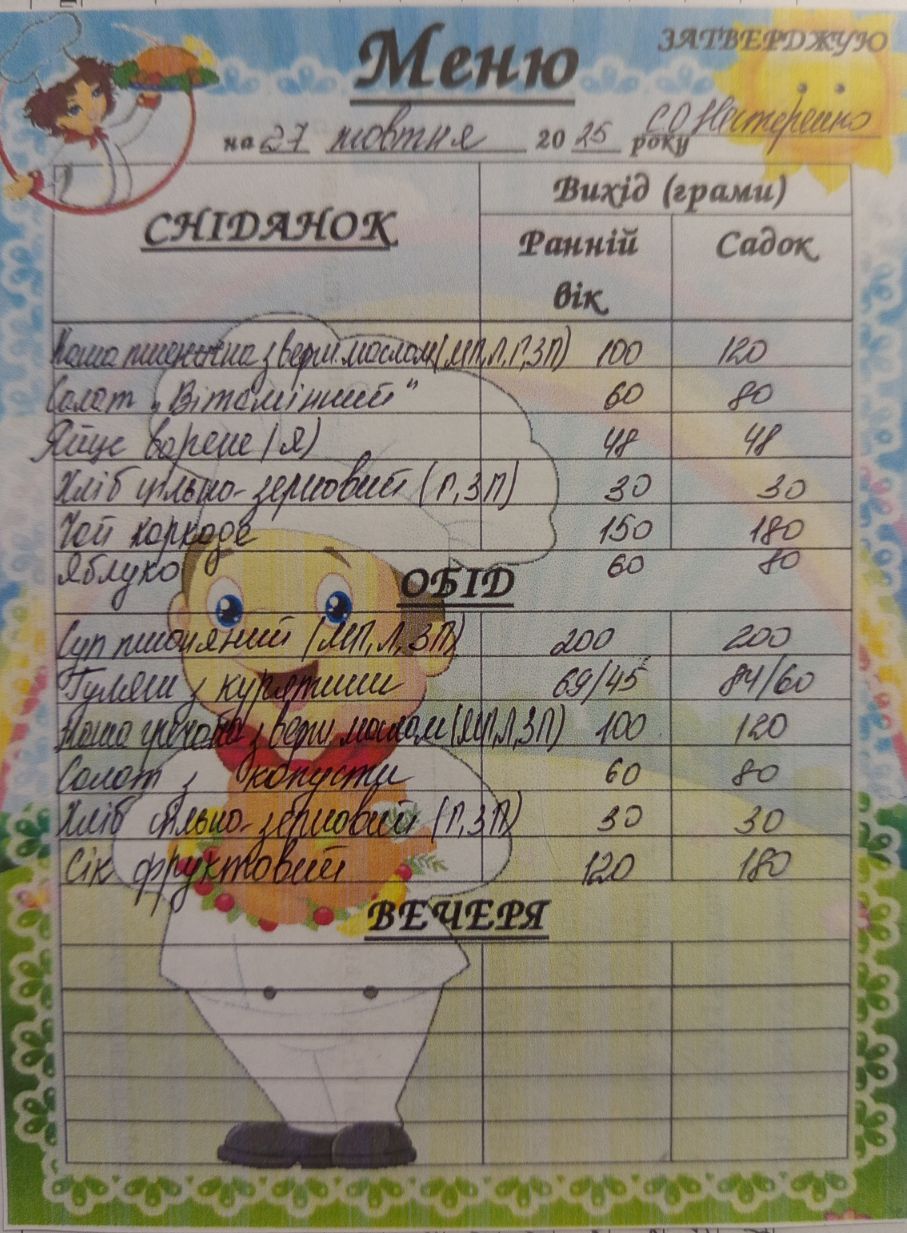 Меню
ЗАТВЕРДЖУЮ
на 27 жовтня 2025 року С.О Нестеренко
СНІДАНОК
Вихід (грами)
Ранній вік
Садок
Каша пшенична з верш. маслом (МП, Л, Г, ЗП) 100 120
Салат „Вітамінний" 60 80
Яйце варене (Я) 48 48
Хліб цільно-зерновий (Г, ЗП) 30 30
Чай каркаде 150 180
Яблуко 60 80
ОБІД
Суп пшоняний (МП, Л, ЗП) 200 200
Гуляш з курятини 69/45 84/60
Каша гречана з верш. маслом (МП, Л, ЗП) 100 120
Салат з капусти 60 80
Хліб цільно-зерновий (Г, ЗП) 30 30
Сік фруктовий 120 180
ВЕЧЕРЯ